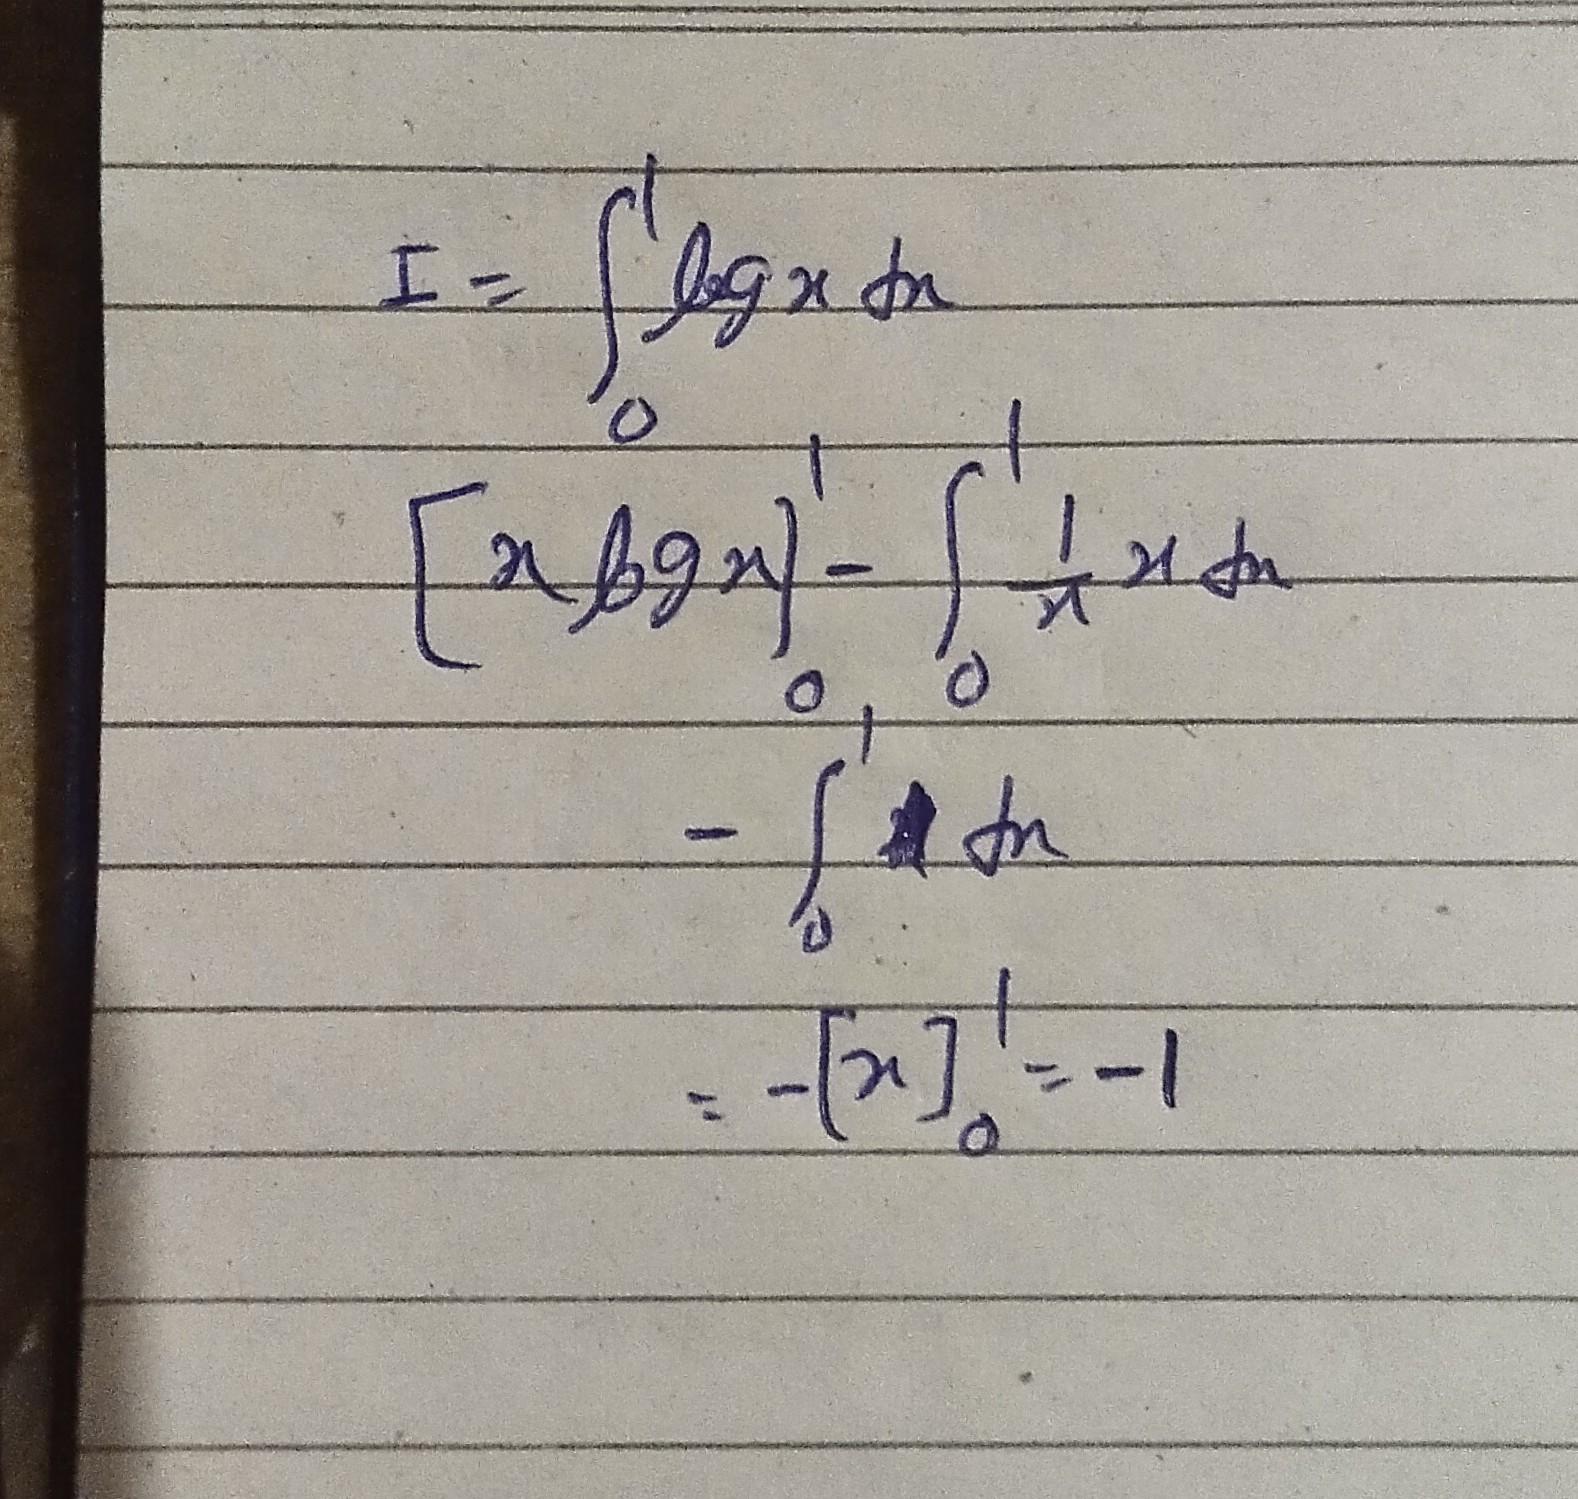 I = ∫₀¹ log x dx
[x log x]₀¹ - ∫₀¹ 1/x x dx
- ∫₀¹ dx
= -[x]₀¹ = -1